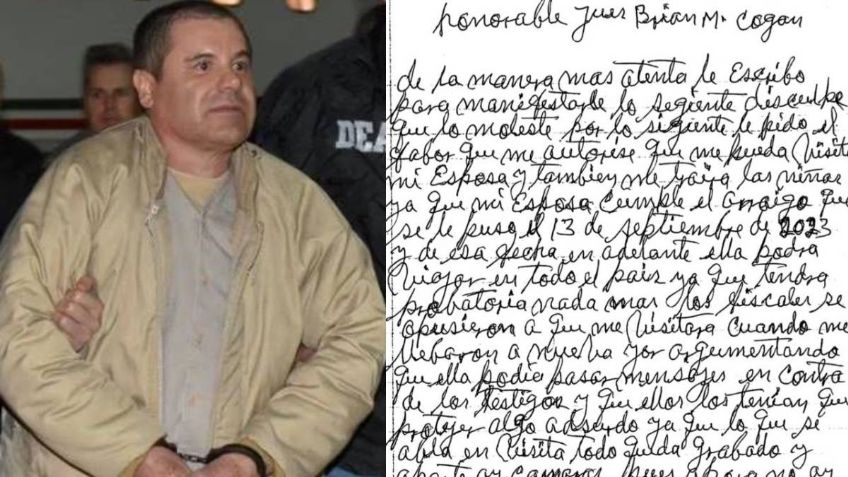 DEA
honorable Jues Brian M. Cogan
de la manera mas atenta le Escribo
para manifestarle lo segiente disculpe
que lo moleste por lo sigiente le pido el
fabor que me autorise que me pueda Visitar
mi Esposa y tambien me traiga las niñas
ya que mi Esposa cumple el arraigo que
se le puso el 13 de septiembre de 2023
y de esa fecha en adelante ella podra
Viajar en todo el pais ya que tendra
probatoria nada mas los fiscales se
opusieron a que me Visitara cuando me
llebaron a nueva yor argumentando
que ella podia pasar mensajes en contra
de los testigos y que ellos los tenian que
protejer algo adsurdo ya que lo que se
abla en Visita todo queda grabado y
aparte ay camaras pues aora no ay